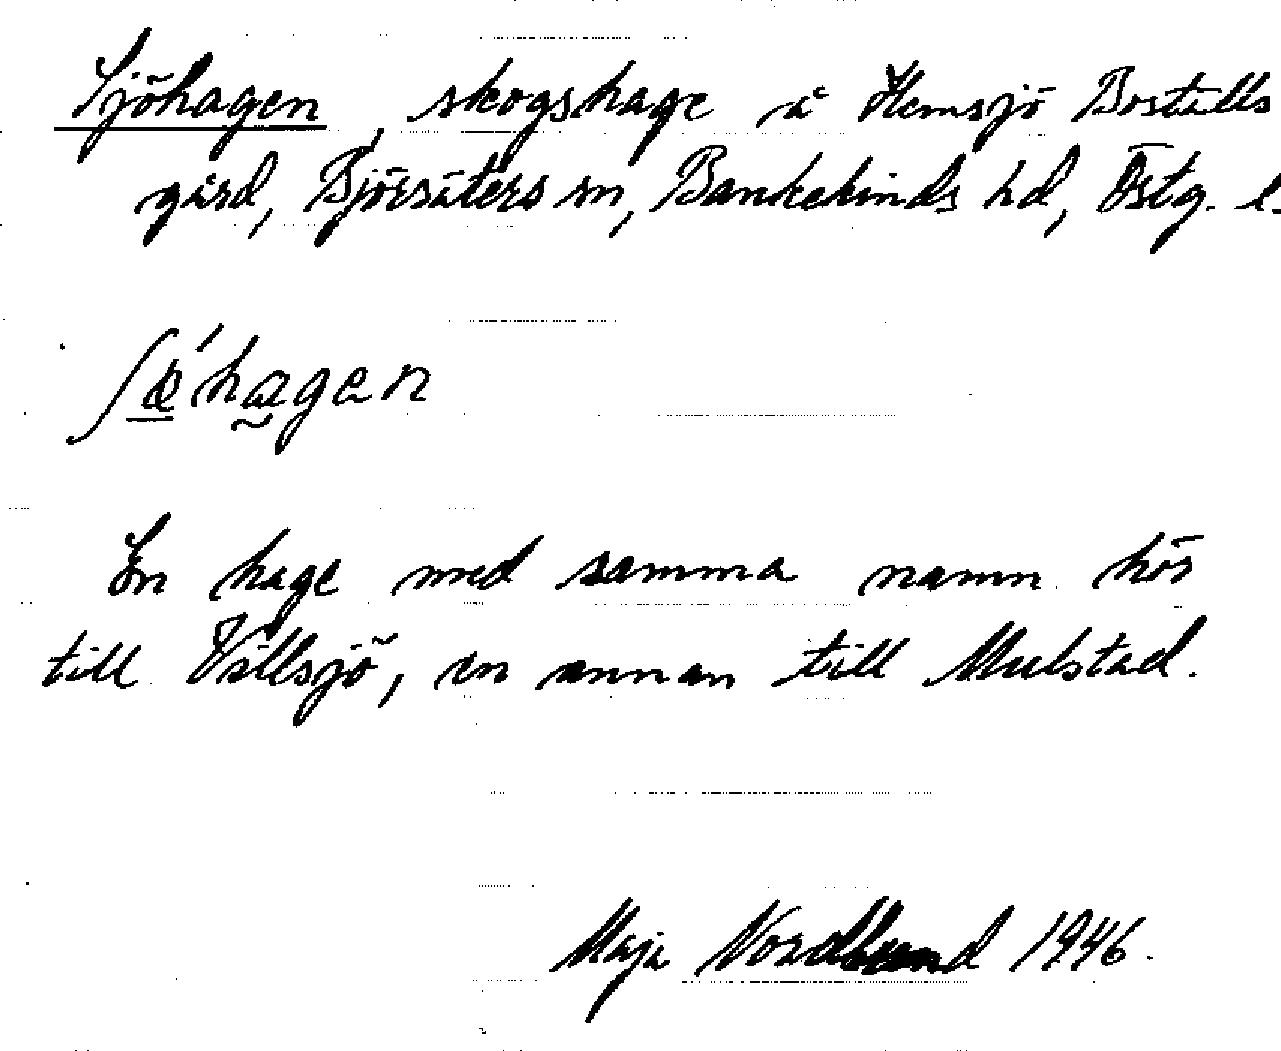 Sjöhagen, skogshage å Hemsjö Boställs
gård, Björsäters sn, Bankekinds hd, Östg. l.
En hage med samma namn hör
till Vällsjö, en annan till Mulstad.
Maja Nordlund 1946.